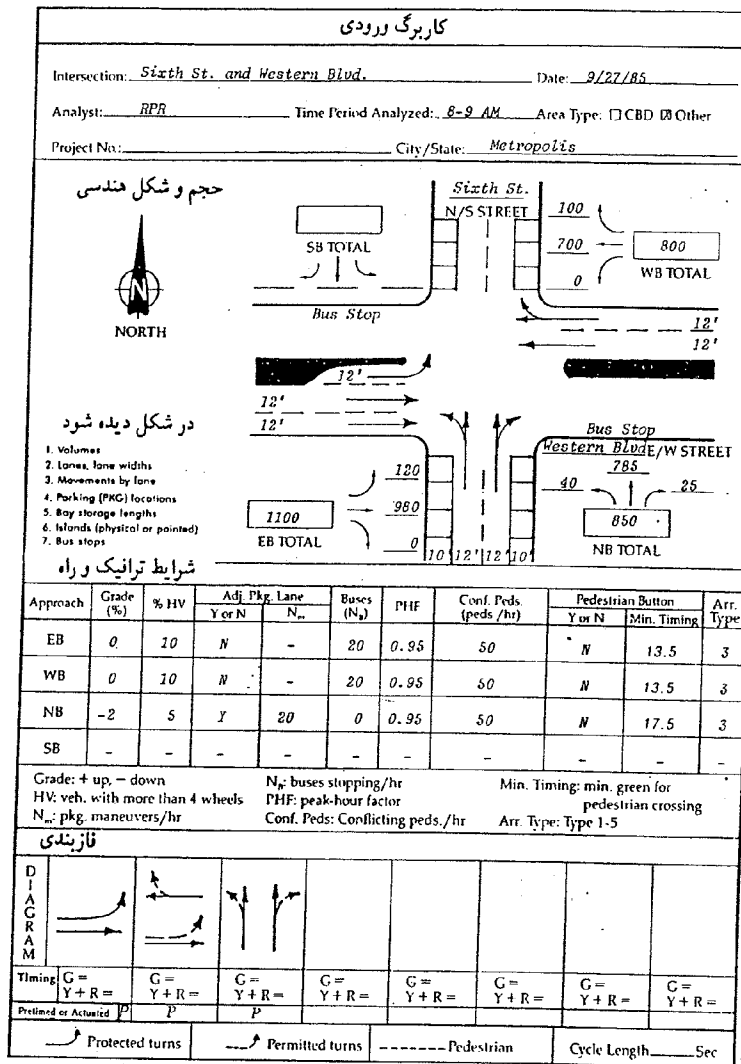 کاربرگ ورودی
Intersection: Sixth St. and Western Blvd. Date: 9/27/85
Analyst: RPR Time Period Analyzed: 8-9 AM Area Type: ☐ CBD ☒ Other
Project No.: City/State: Metropolis
حجم و شکل هندسی
N
NORTH
SB TOTAL
Sixth St.
N/S STREET
100
700
0
800
WB TOTAL
Bus Stop
12'
12'
12'
12'
12'
در شکل دیده شود
1. Volumes
2. Lanes, lane widths
3. Movements by lane
4. Parking (PKG) locations
5. Bay storage lengths
6. Islands (physical or painted)
7. Bus stops
120
980
0
1100
EB TOTAL
10' 12' 12' 10'
Bus Stop
Western Blvd E/W STREET
785
40 25
850
NB TOTAL
شرایط ترافیک و راه
Approach Grade (%) % HV Adj. Pkg. Lane Buses (N_B) PHF Conf. Peds. (peds/hr) Pedestrian Button Arr. Type
Y or N N_m Y or N Min. Timing
EB 0 10 N - 20 0.95 50 N 13.5 3
WB 0 10 N - 20 0.95 50 N 13.5 3
NB -2 5 Y 20 0 0.95 50 N 17.5 3
SB - - - - - - - - - -
Grade: + up, − down N_B: buses stopping/hr Min. Timing: min. green for
HV: veh. with more than 4 wheels PHF: peak-hour factor pedestrian crossing
N_m: pkg. maneuvers/hr Conf. Peds: Conflicting peds./hr Arr. Type: Type 1-5
فازبندی
DIAGRAM
Timing G = G = G = G = G = G = G = G =
Y + R = Y + R = Y + R = Y + R = Y + R = Y + R = Y + R = Y + R =
Pretimed or Actuated P P P
Protected turns Permitted turns Pedestrian Cycle Length Sec